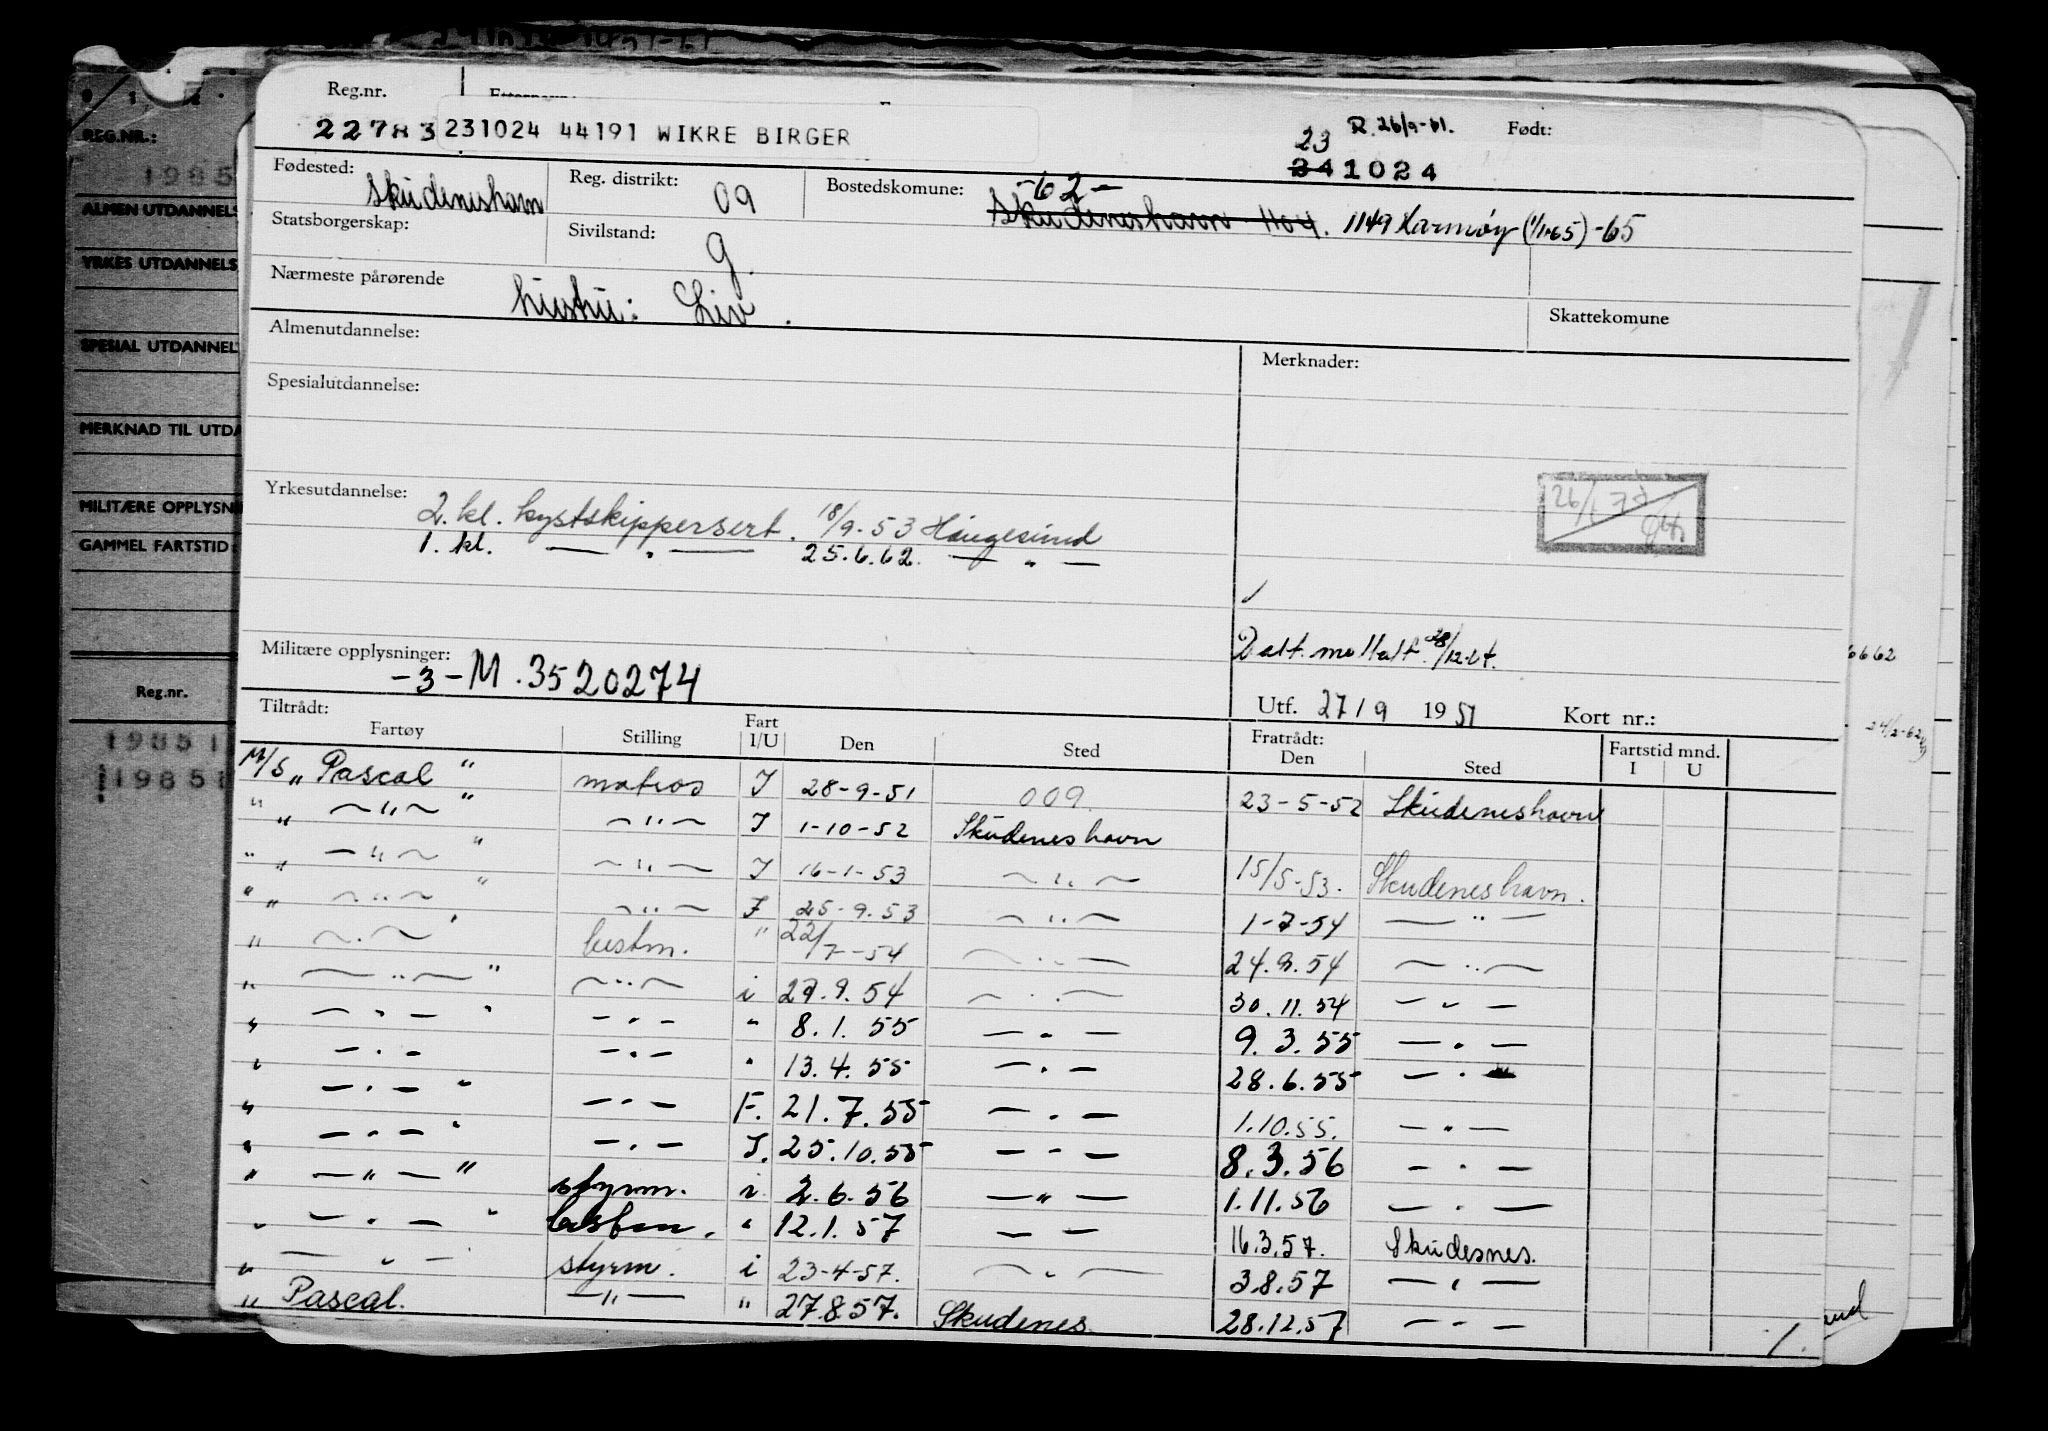 Reg.nr.
22783 231024 44191 WIKRE BIRGER
23 R. 26/9-61. Født:
241024
Fødested: Skudeneshavn Reg. distrikt: 09 Bostedskomune: -62-
Skudeneshavn 1104. 1149 Karmøy (1/1-65) -65
Statsborgerskap: Sivilstand: g.
Nærmeste pårørende hustru: Liv.
Skattekomune
Almenutdannelse:
Merknader:
Spesialutdannelse:
Yrkesutdannelse: 2. kl. kystskippersert. 18/9-53 Haugesund
1. kl. — " — 25.6.62. — " —
26/1 77
Militære opplysninger: -3- M. 3520274
Utf. 27/9 1951 Kort nr.:
Tiltrådt: Fratrådt: Fartstid mnd.
Fartøy Stilling Fart I/U Den Sted Den Sted I U
M/S „Pascal" matros I 28-9-51 009. 23-5-52 Skudeneshavn
" „ — " — " — " — I 1-10-52 Skudeneshavn
" „ — " — " — " — I 16-1-53 — " — 15/5-53. Skudeneshavn.
" „ — " — " — " — F 25-9.53 — " — 1-7-54 — " —
" — " — " bestm. " 22/7-54 — " — 24.9.54 — " —
" — " — " — " — i 29.9.54 — " — 30.11.54 — " —
" — " — " — " — " 8.1.55 — " — 9.3.55 — " —
" — " — — " — " 13.4.55 — " — 28.6.55 — " —
" — " — " — " — F. 21.7.55 — " — 1.10.55. — " —
" — " — " — " — I. 25.10.55 — " — 8.3.56 — " —
" — " — " styrm. i 2.6.56 — " — 1.11.56 — " —
" — " — " bestm. " 12.1.57 — — 16.3.57. Skudesnes.
" — " — styrm. i 23-4-57. — " — 3.8.57 — " —
" Pascal. — " — " 27.8.57. Skudenes. 28.12.57 — " —
1.
REG.NR.:
1985
ALMEN UTDANNELS
YRKES UTDANNELS
SPESIAL UTDANNEL
MERKNAD TIL UTDA
MILITÆRE OPPLYSNI
GAMMEL FARTSTID
Reg.nr.
19851
1985